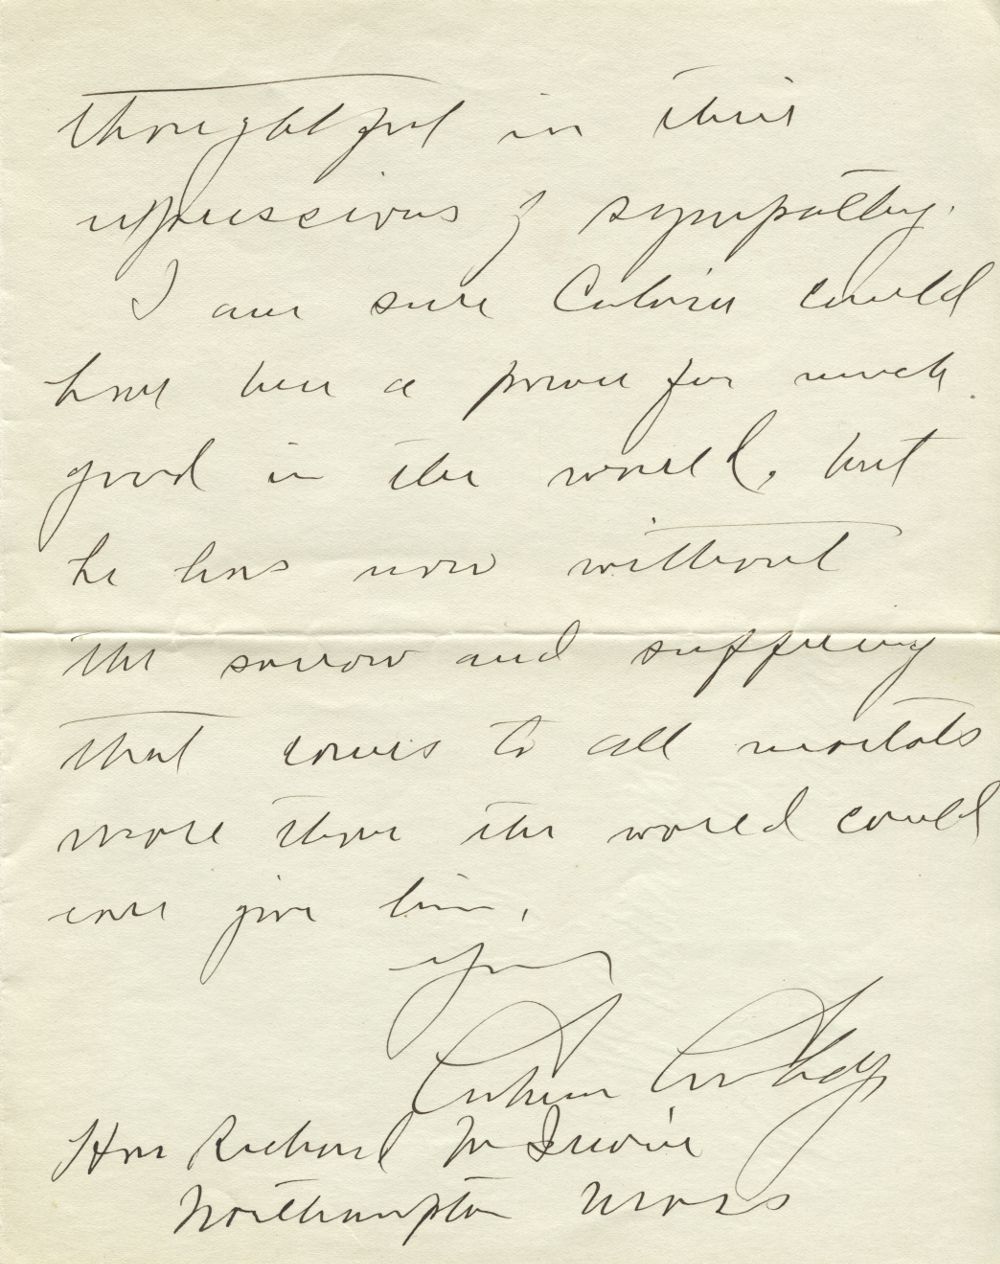 thoughtful in their
expressions of sympathy.
I am sure Calvin could
have been a power for much
good in the world, but
he has now without
the sorrow and suffering
that comes to all mortals
more than the world could
ever give him.
Yours
Calvin Coolidge
Hon Richard W Irwin
Northampton Mass